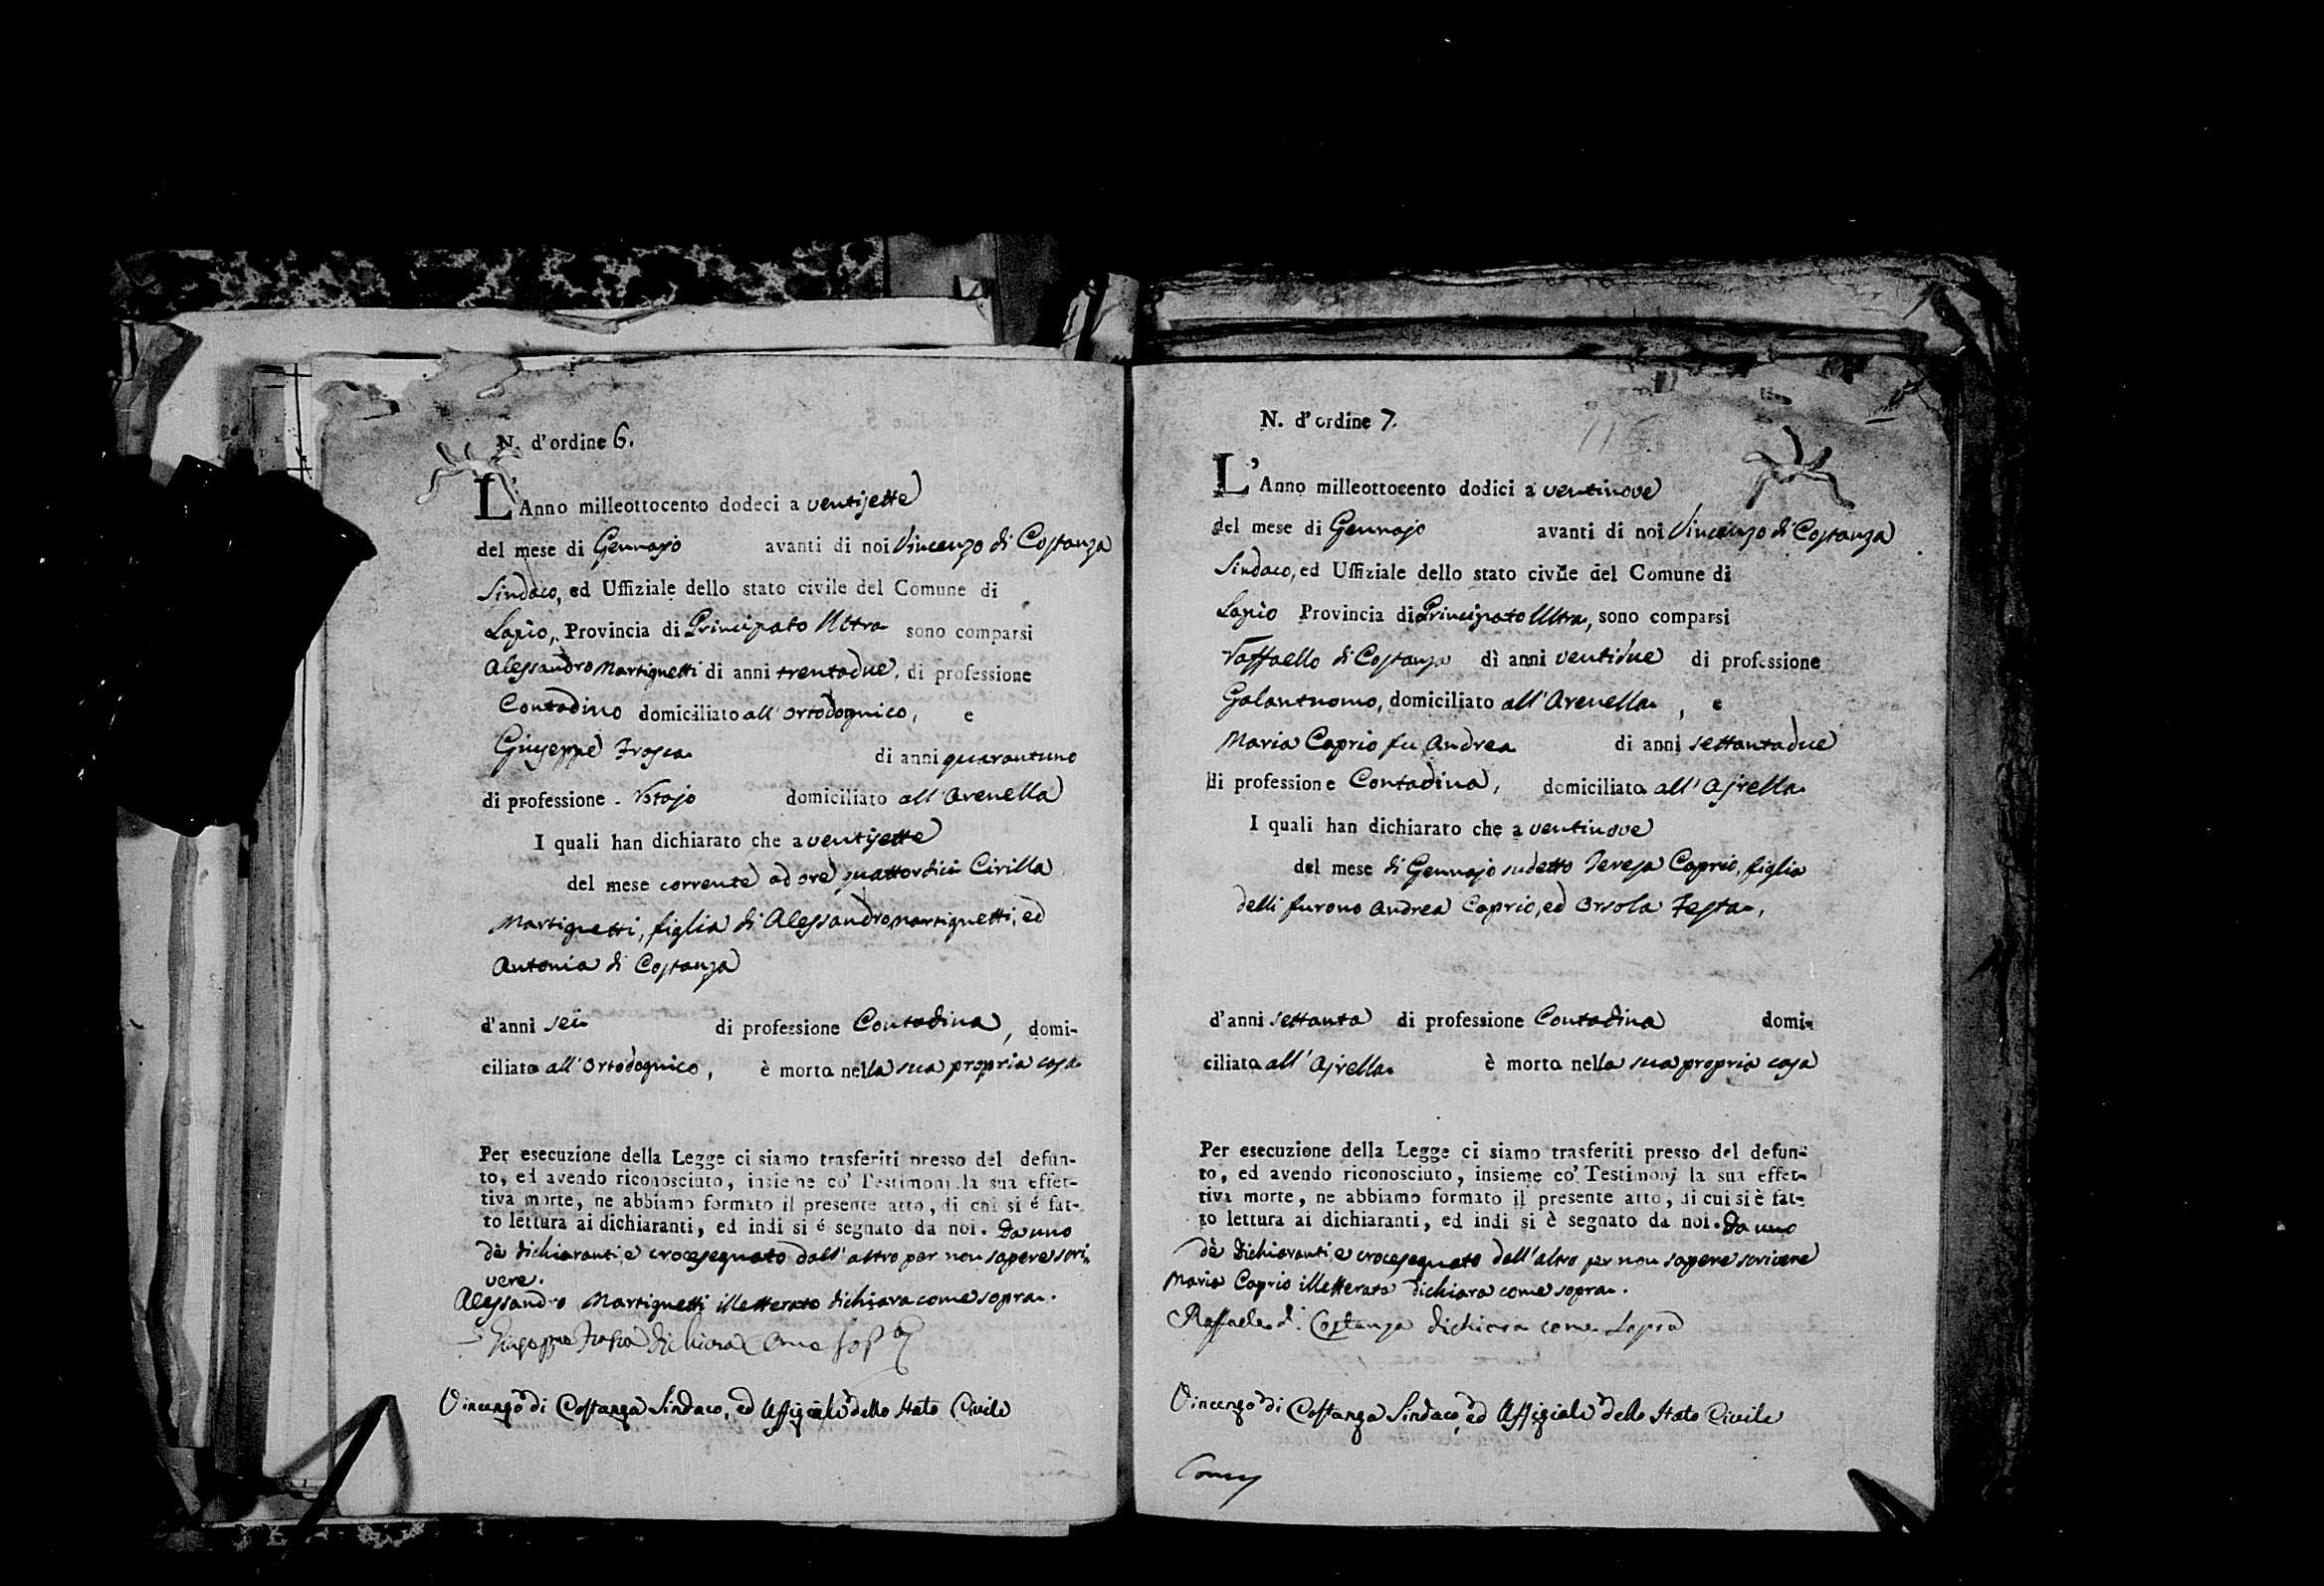 N. d'ordine 6.
L'Anno milleottocento dodeci a ventisette
del mese di Gennajo avanti di noi Vincenzo di Costanza
Sindaco, ed Uffiziale dello stato civile del Comune di
Lapio, Provincia di Principato Ultra sono comparsi
Alessandro Martignetti di anni trentadue, di professione
Contadino domiciliato all'Ortodognico, e
Giuseppe Frosca di anni quarantuno
di professione Notajo domiciliato all'Arenella
I quali han dichiarato che a ventisette
del mese corrente ad ore quattordici Cirilla
Martignetti, figlia di Alessandro Martignetti, ed
Antonia di Costanza
d'anni sei di professione Contadina, domi-
ciliata all'Ortodognico, è morta nella sua propria casa
Per esecuzione della Legge ci siamo trasferiti presso del defun-
to, ed avendo riconosciuto, insieme co' Testimonj la sua effet-
tiva morte, ne abbiamo formato il presente atto, di cui si é fat-
to lettura ai dichiaranti, ed indi si é segnato da noi. Da uno
dè dichiaranti, e crocesegnato dall'altro per non sapere scri-
vere.
Alessandro Martignetti illetterato dichiara come sopra.
Giuseppe Frosca dichiara come sopra
Vincenzo di Costanza Sindaco, ed Uffiziale dello Stato Civile
N. d'ordine 7.
L'Anno milleottocento dodici a ventinove
del mese di Gennajo avanti di noi Vincenzo di Costanza
Sindaco, ed Uffiziale dello stato civile del Comune di
Lapio Provincia di Principato Ultra, sono comparsi
Raffaello di Costanza di anni ventidue di professione
Galantuomo, domiciliato all'Arenella, e
Maria Caprio fu Andrea di anni settantadue
di professione Contadina, domiciliata all'Ajrella.
I quali han dichiarato che a ventinove
del mese di Gennajo sudetto Teresa Caprio, figlia
delli furono Andrea Caprio, ed Orsola Testa,
d'anni settanta di professione Contadina domi-
ciliata all'Ajrella. è morta nella sua propria casa
Per esecuzione della Legge ci siamo trasferiti presso del defun-
to, ed avendo riconosciuto, insieme co' Testimonj la sua effet-
tiva morte, ne abbiamo formato il presente atto, di cui si è fat-
to lettura ai dichiaranti, ed indi si è segnato da noi. Da uno
dè dichiaranti, e crocesegnato dall'altro per non sapere scrivere
Maria Caprio illetterata dichiara come sopra.
Raffaele di Costanza dichiara come sopra
Vincenzo di Costanza Sindaco, ed Uffiziale dello Stato Civile